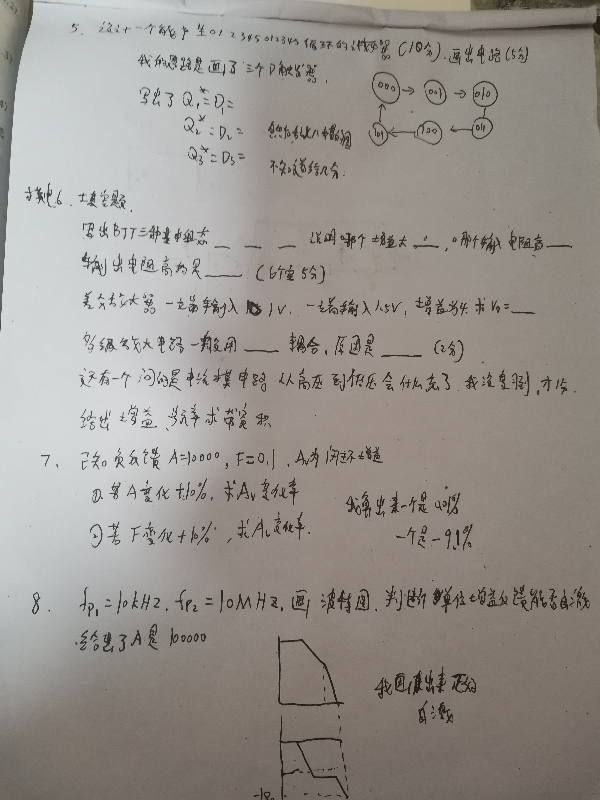 5. 设计一个能产生012345012345循环的计数器(10分),画出电路(5分)
我的思路是画了三个D触发器,
写出了 Q₁*=D₁=
Q₂*=D₂=
Q₃*=D₃=
不知道给几分.
000 001 010
101 100 011
模电6. 填空题.
写出BJT三种基本组态 _ _ _ 说明哪个增益大 _, 哪个输入电阻高 _
输出电阻高的是 _ (每空5分)
差分放大器 一端输入 1V, 一端输入1.5V, 增益为4. 求V₀=_
多级放大电路一般用 _ 耦合, 原因是 _ (2分)
还有一个问的是 电路从高压到低压会什么忘了, 我没复习到,
给出增益、频率求带宽积
7. 已知负反馈 A=10000, F=0.1, Av为闭环增益
①若A变化+10%, 求Av变化率
②若F变化+10%, 求Av变化率.
我算出来一个是0.01%
一个是-9.1%
8. fp₁=10kHz, fp₂=10MHz, 画波特图, 判断单位增益反馈能否自激
给出了A是100000
我图像出来
自激